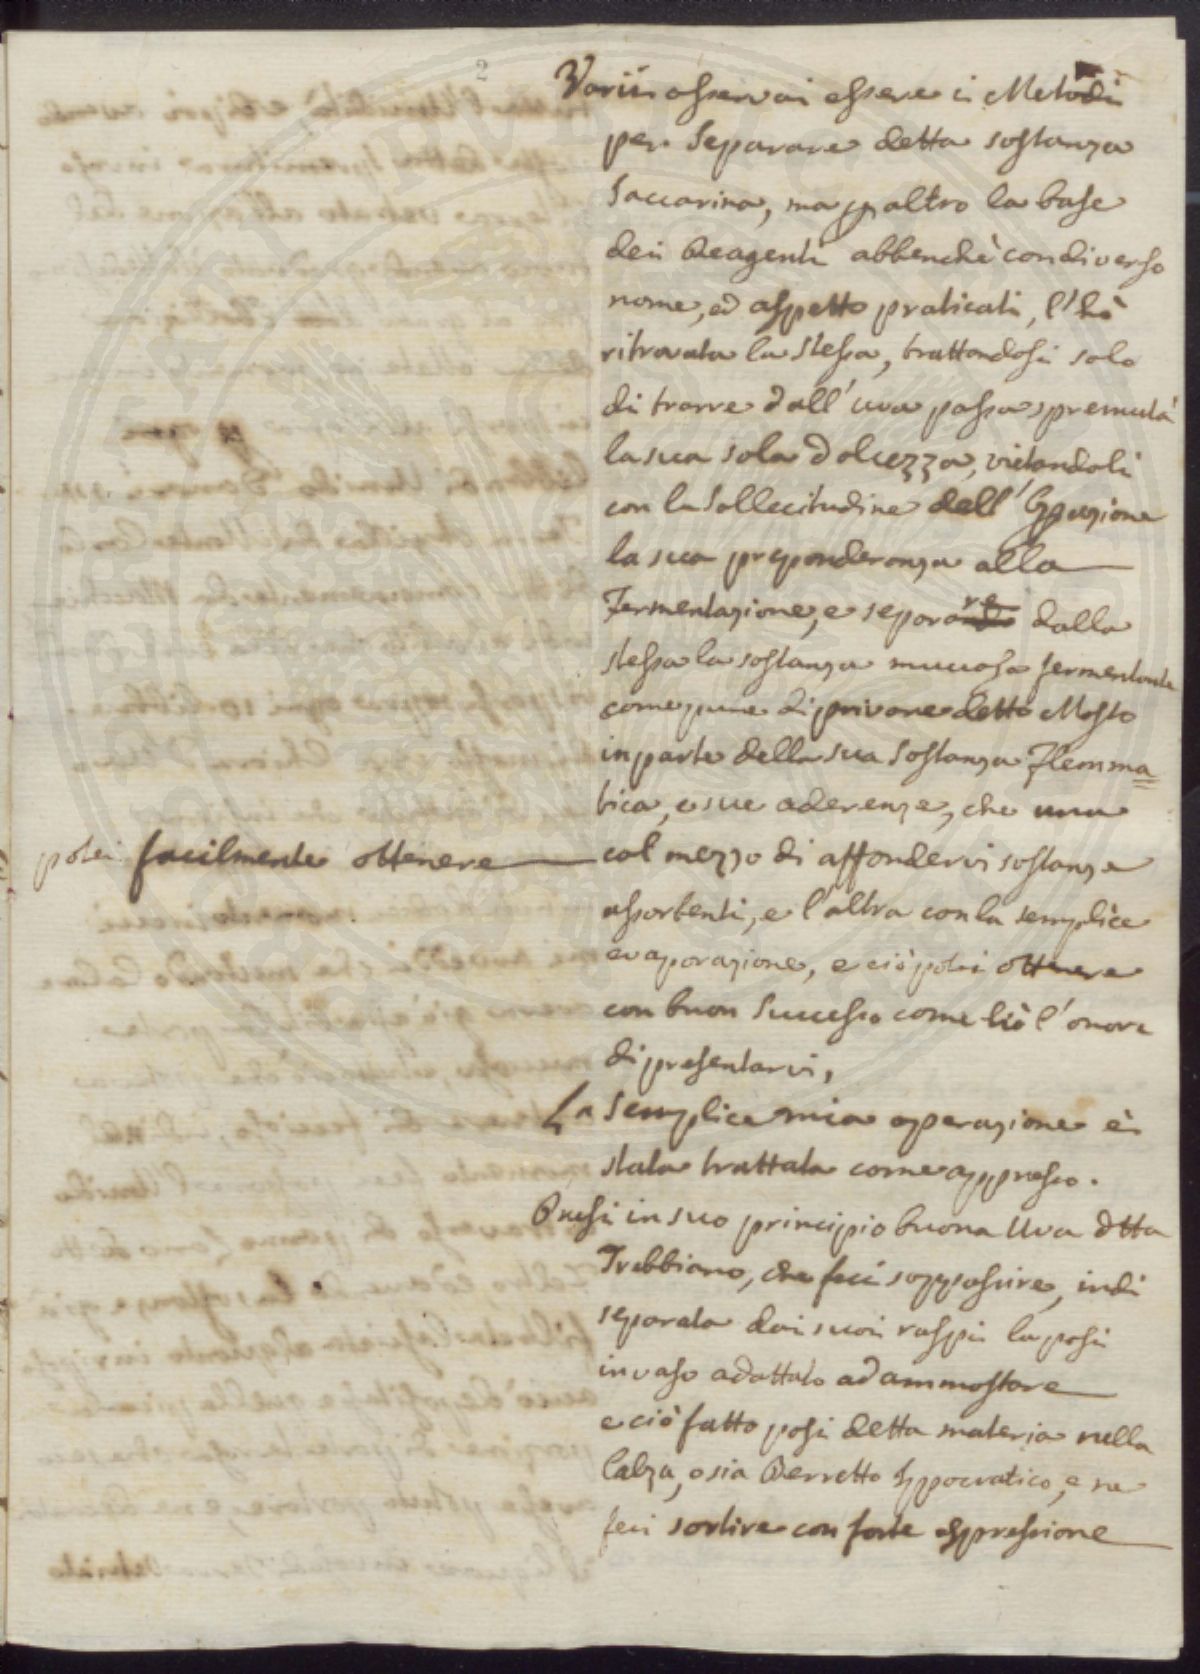 2
Varii osservai essere i Metodi
per separare detta sostanza
Saccarina, ma per altro la base
dei Reagenti abbenchè con diverso
nome, ed aspetto praticati, l'hò
ritrovata la stessa, trattandosi solo
di trarre dall'uva passa spremuta
la sua sola dolcezza, vietandoli
con la sollecitudine dell'
la sua preponderanza alla
Fermentazione, e separare dalla
stessa la sostanza muccosa fermentante
come pure di privare detto Mosto
in parte della sua sostanza Flemma=
tica, e sue aderenze, che una
potei facilmente ottenere
col mezzo di affondervi sostanze
assorbenti, e l'altra con la semplice
evaporazione, e ciò potei ottenere
con buon successo come hò l'onore
di presentarvi,
La semplice mia operazione è
stata trattata come appresso.
Presi in suo principio buona Uva dtta
Trebbiano, che feci soppassire, indi
separata dai suoi raspi la posi
in vaso adattato ad ammostare
e ciò fatto posi detta materia nella
Calza, o sia Berretto Ippocratico, e ne
feci sortire con forte espressione